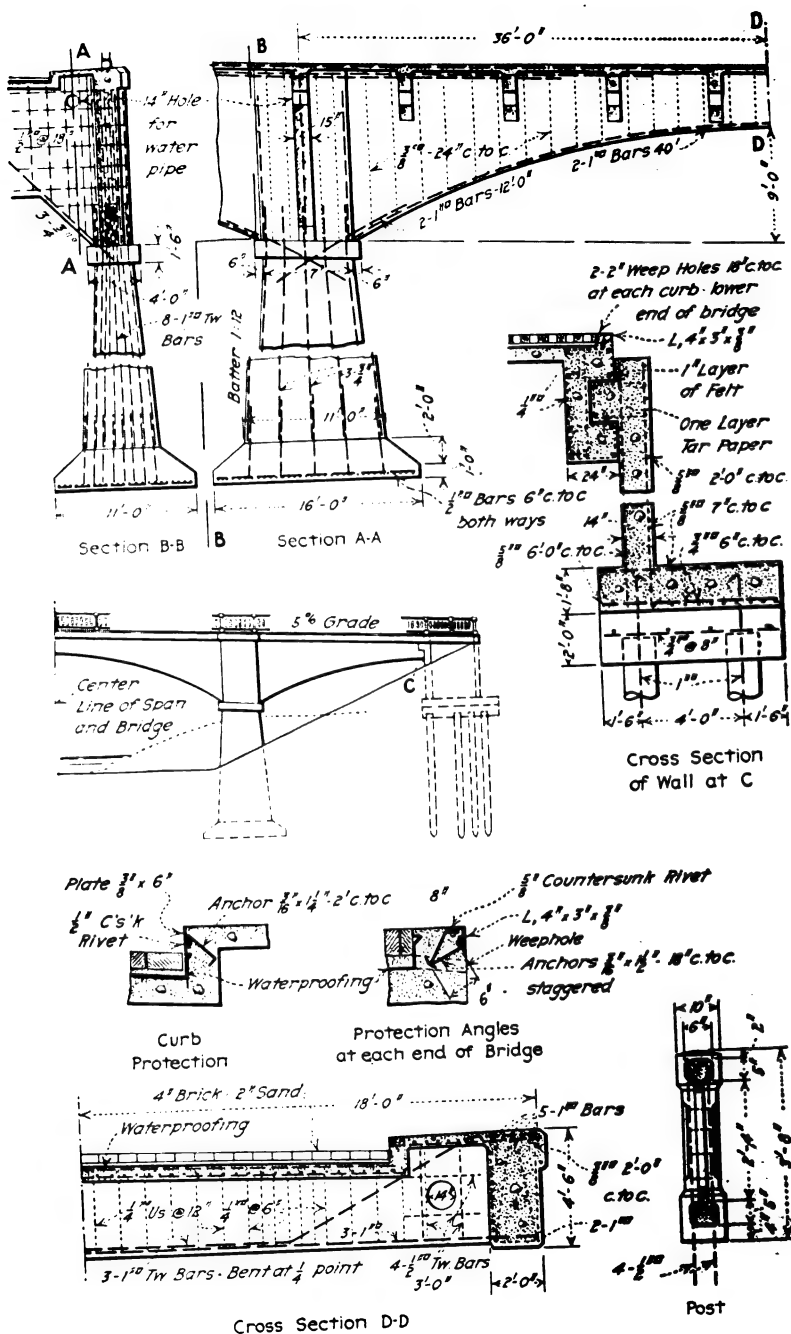 A
B
36'-0"
D
14" Hole
for
water
pipe
15"
3/8"□-24"c.to c
2-1"□ Bars 40'
2-1"□ Bars-12'-0"
D
9'-0"
3-3/4"□
A
1'-6"
4'-0"
8-1"□ Tw
Bars
6"
7'
6"
Batter 1:12
3-3/4
11'-0"
2'-0"
1'-0"
1/2"□ Bars 6"c.to c
both ways
11'-0"
16'-0"
B
Section B-B
Section A-A
2-2" Weep Holes 18"c.to c.
at each curb-lower
end of bridge
L, 4"x 3"x 3/8"
1" Layer
of Felt
1/4"□
One Layer
Tar Paper
24"
5/8"□ 2'-0" c.to c.
14"
5/8"□ 7"c.to c
5/8"□ 6'-0"c.to c.
3/4"□ 6"c.to c.
1'-8"
2'-0"
3/4"□ @ 8"
1"□
1'-6"
4'-0"
1'-6"
Cross Section
of Wall at C
5% Grade
Center
Line of Span
and Bridge
C
Plate 3/8" x 6"
1/2" C's'k
Rivet
Anchor 3/16"x 1 1/4"-2' c.to c
Waterproofing
Curb
Protection
8"
5/8" Countersunk Rivet
L, 4"x 3"x 3/8"
Weephole
Anchors 3/16"x 1 1/2"- 18"c.to c.
staggered
6"
Protection Angles
at each end of Bridge
4" Brick-2" Sand
18'-0"
Waterproofing
5-1"□ Bars
3/8"□ 2'-0"
c.to c.
4'-6"
14"
1/4"□ Us @ 18"
1/4"□ @ 6"
3-1"□
2-1"□
3-1"□ Tw Bars-Bent at 1/4 point
4-1/2"□ Tw. Bars
3'-0"
2'-0"
Cross Section D-D
10"
6"
2"
5"
2'-4"
3'-8"
6"
4"
4-1/2"□
Post